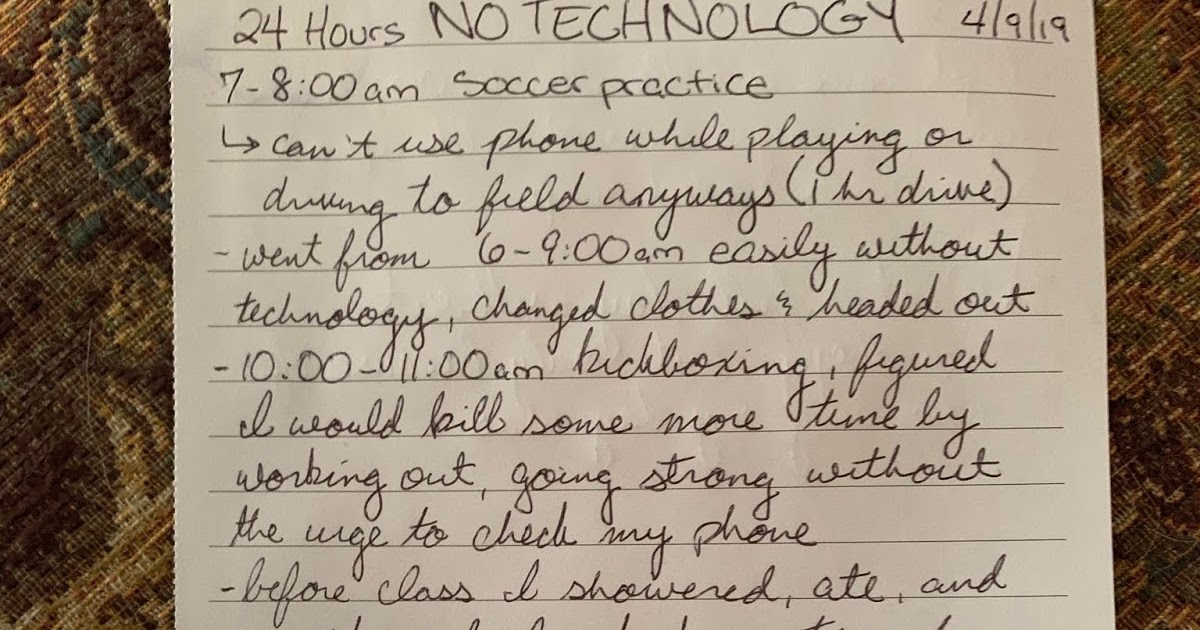 24 Hours NO TECHNOLOGY 4/9/19
7-8:00am Soccer practice
↳ can't use phone while playing or
driving to field anyways (1 hr drive)
- went from 6-9:00am easily without
technology, changed clothes & headed out
- 10:00-11:00am kickboxing, figured
I would kill some more time by
working out, going strong without
the urge to check my phone
- before class I showered, ate, and